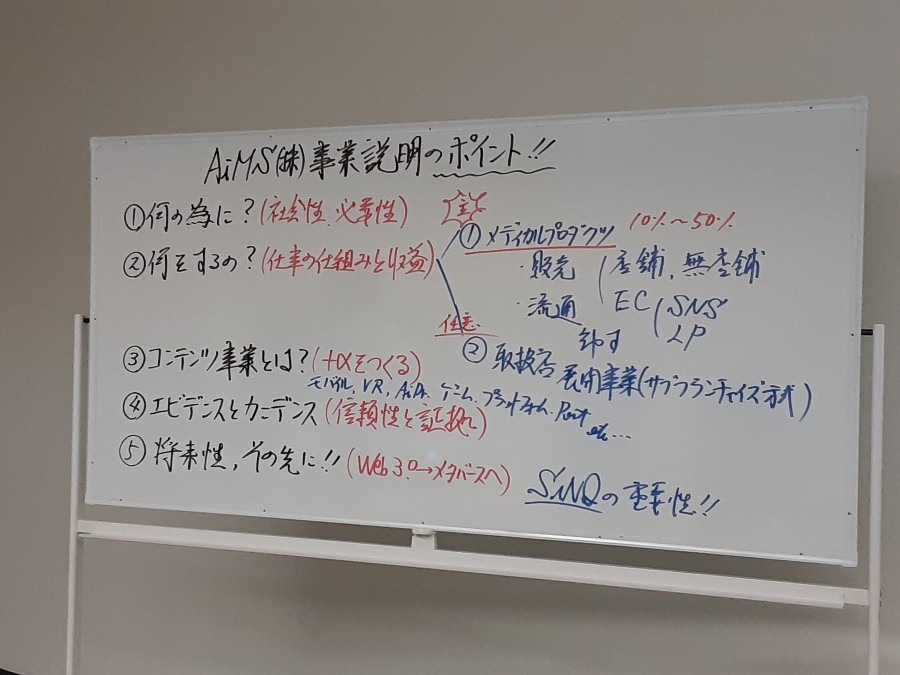 AiMS(株)事業説明のポイント!!
①何の為に?(社会性、必要性)
②何をするの?(仕事の仕組みと収益)
①メディカルプロダクツ 10%〜50%
・販売 店舗、無店舗
・流通 EC SNS
LP
任意
②取扱店展開事業(サブフランチャイズ方式)
③コンテンツ事業とは?(+αをつくる)
モバイル、VR、
ゲーム、プラットフォーム、
etc…
④エビデンスとカニデンス(信頼性と証拠)
⑤将来性、その先に!!(Web3.0→メタバースへ)
の重要性!!